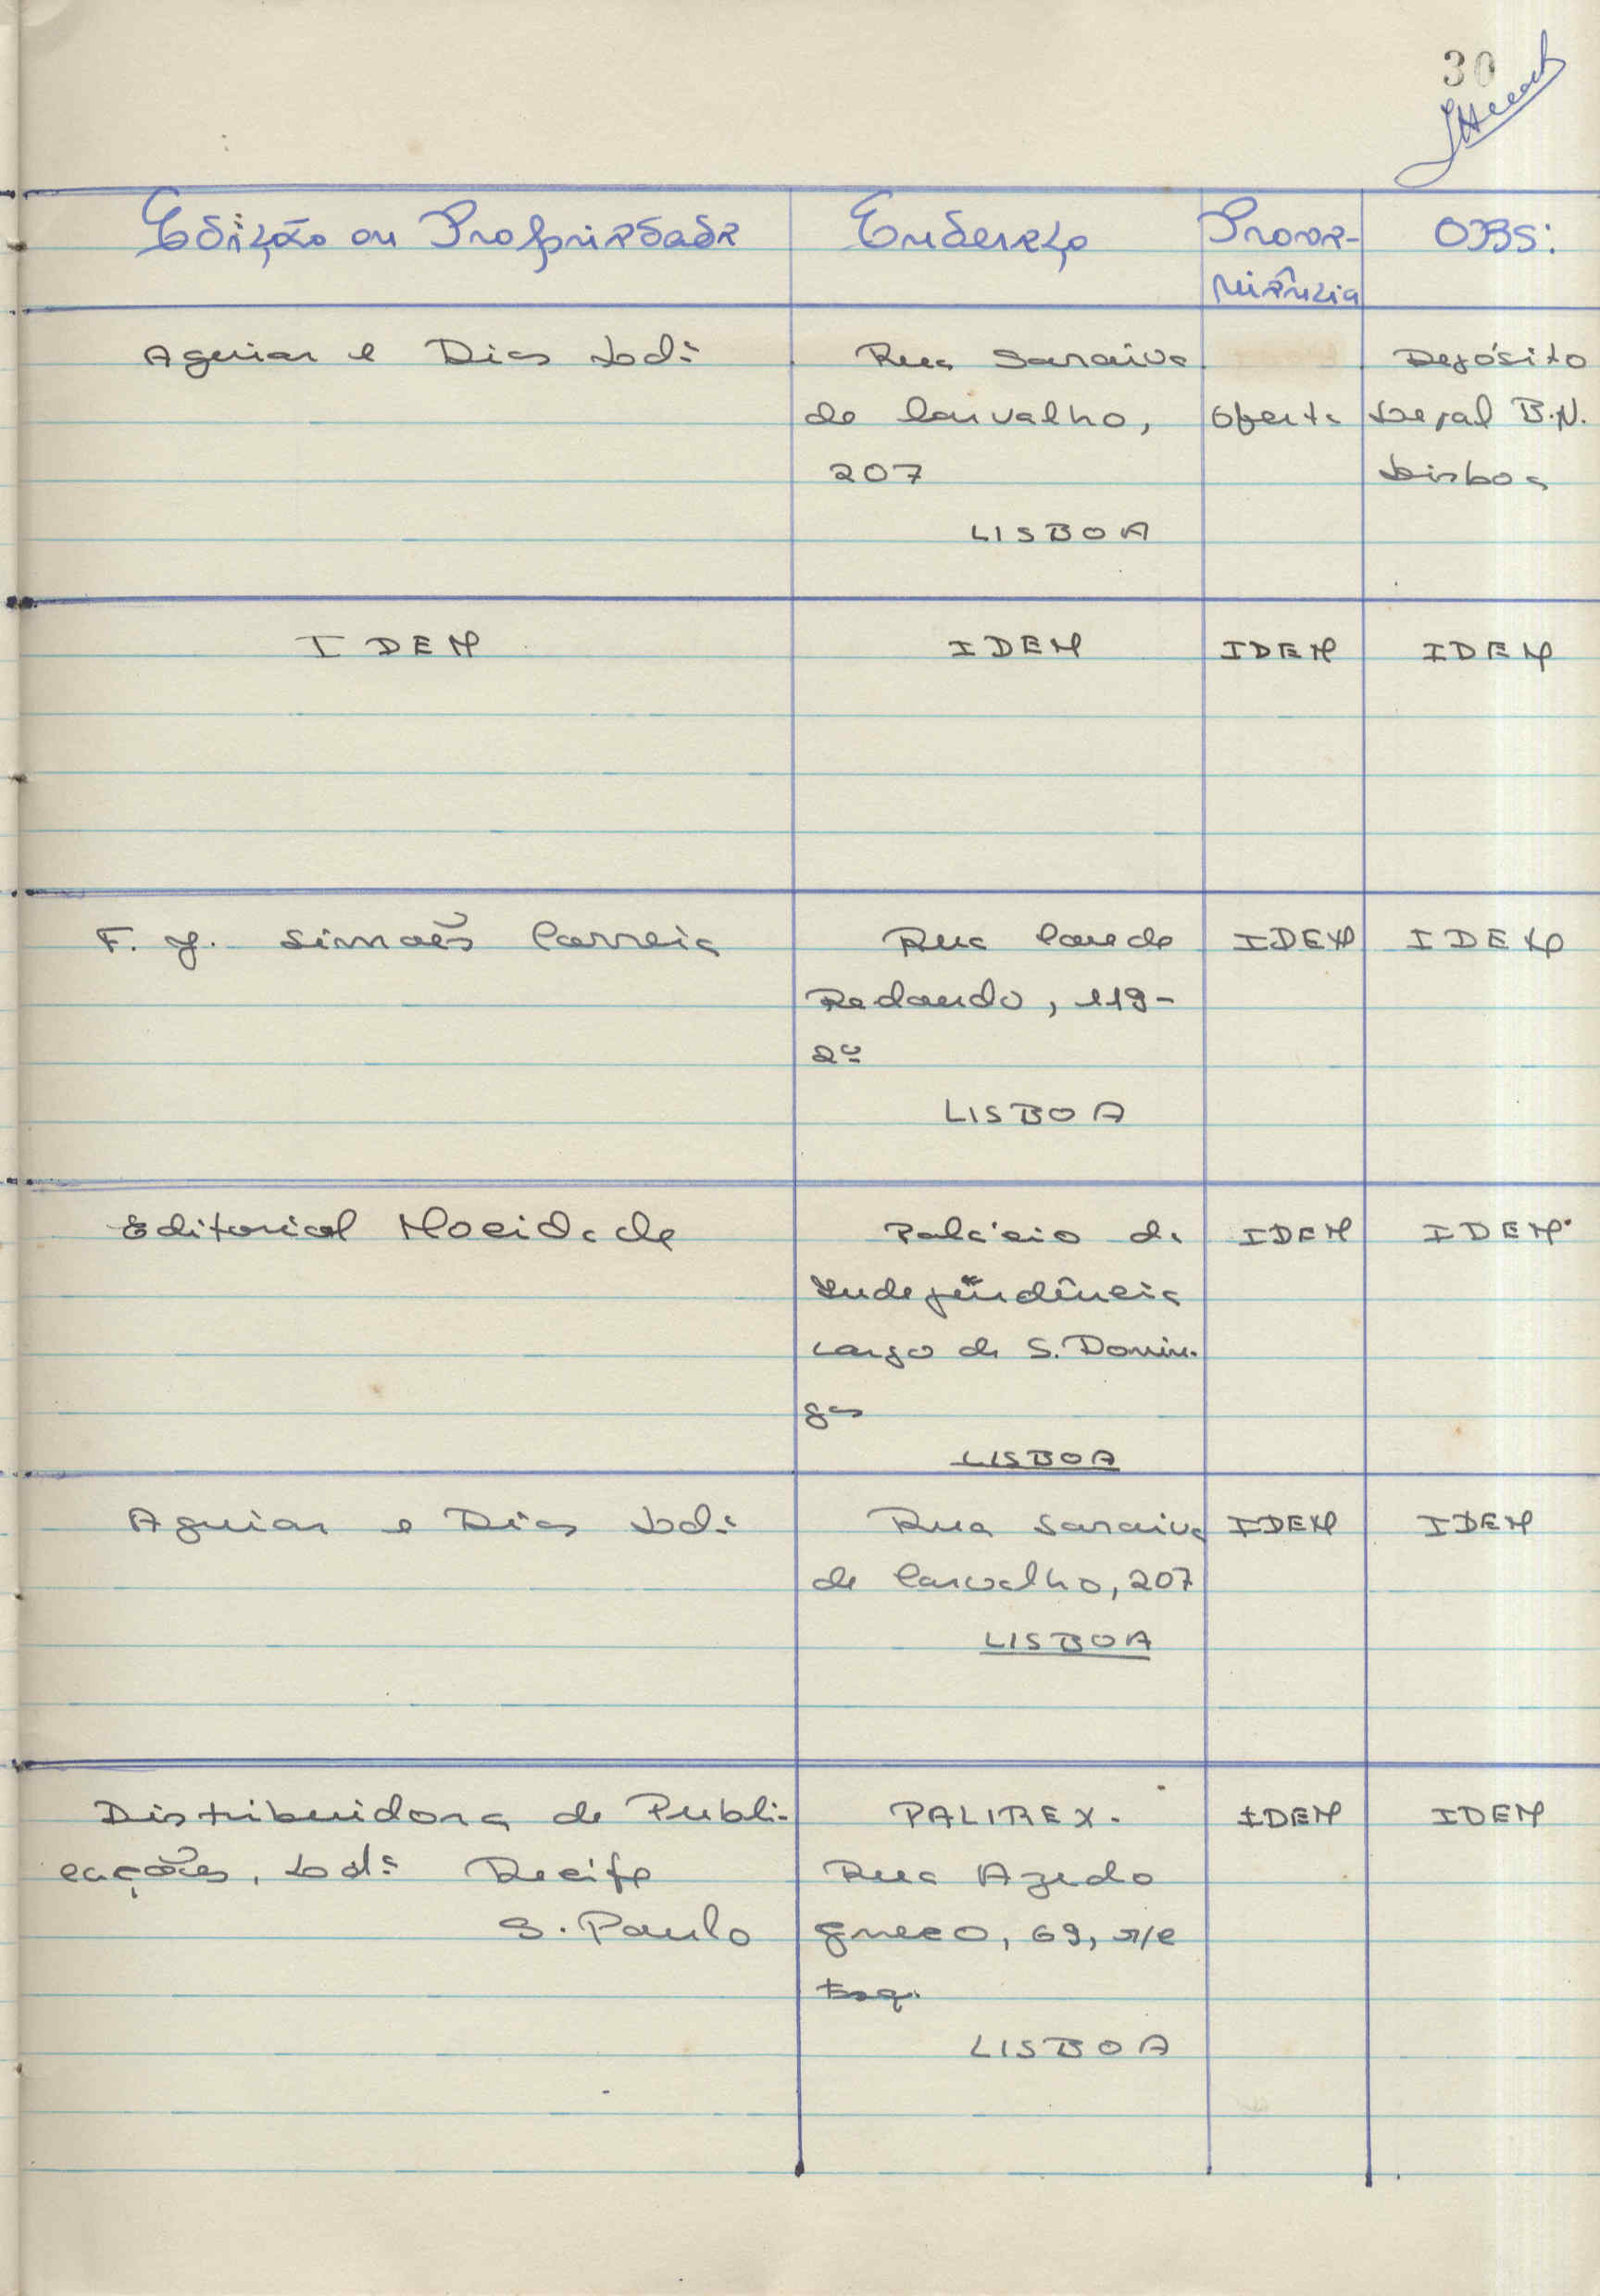 30
Edição ou Propriedade Endereço Prove- OBS:
niência
Aguiar e Dias Lda Rua Saraiva Depósito
de Carvalho, Oferta Legal B.N.
207 Lisboa
LISBOA
IDEM IDEM IDEM IDEM
F. J. Simões Correia Rua Conde IDEM IDEM
Redondo, 119-
2º
LISBOA
Editorial Mocidade Palácio da IDEM IDEM
Independência
Largo de S. Domin-
gos
LISBOA
Aguiar e Dias Lda Rua Saraiva IDEM IDEM
de Carvalho, 207
LISBOA
Distribuidora de Publi- PALIREX. IDEM IDEM
cações, Lda Recife Rua Azedo
S. Paulo gneco, 69, r/c
Esq.
LISBOA